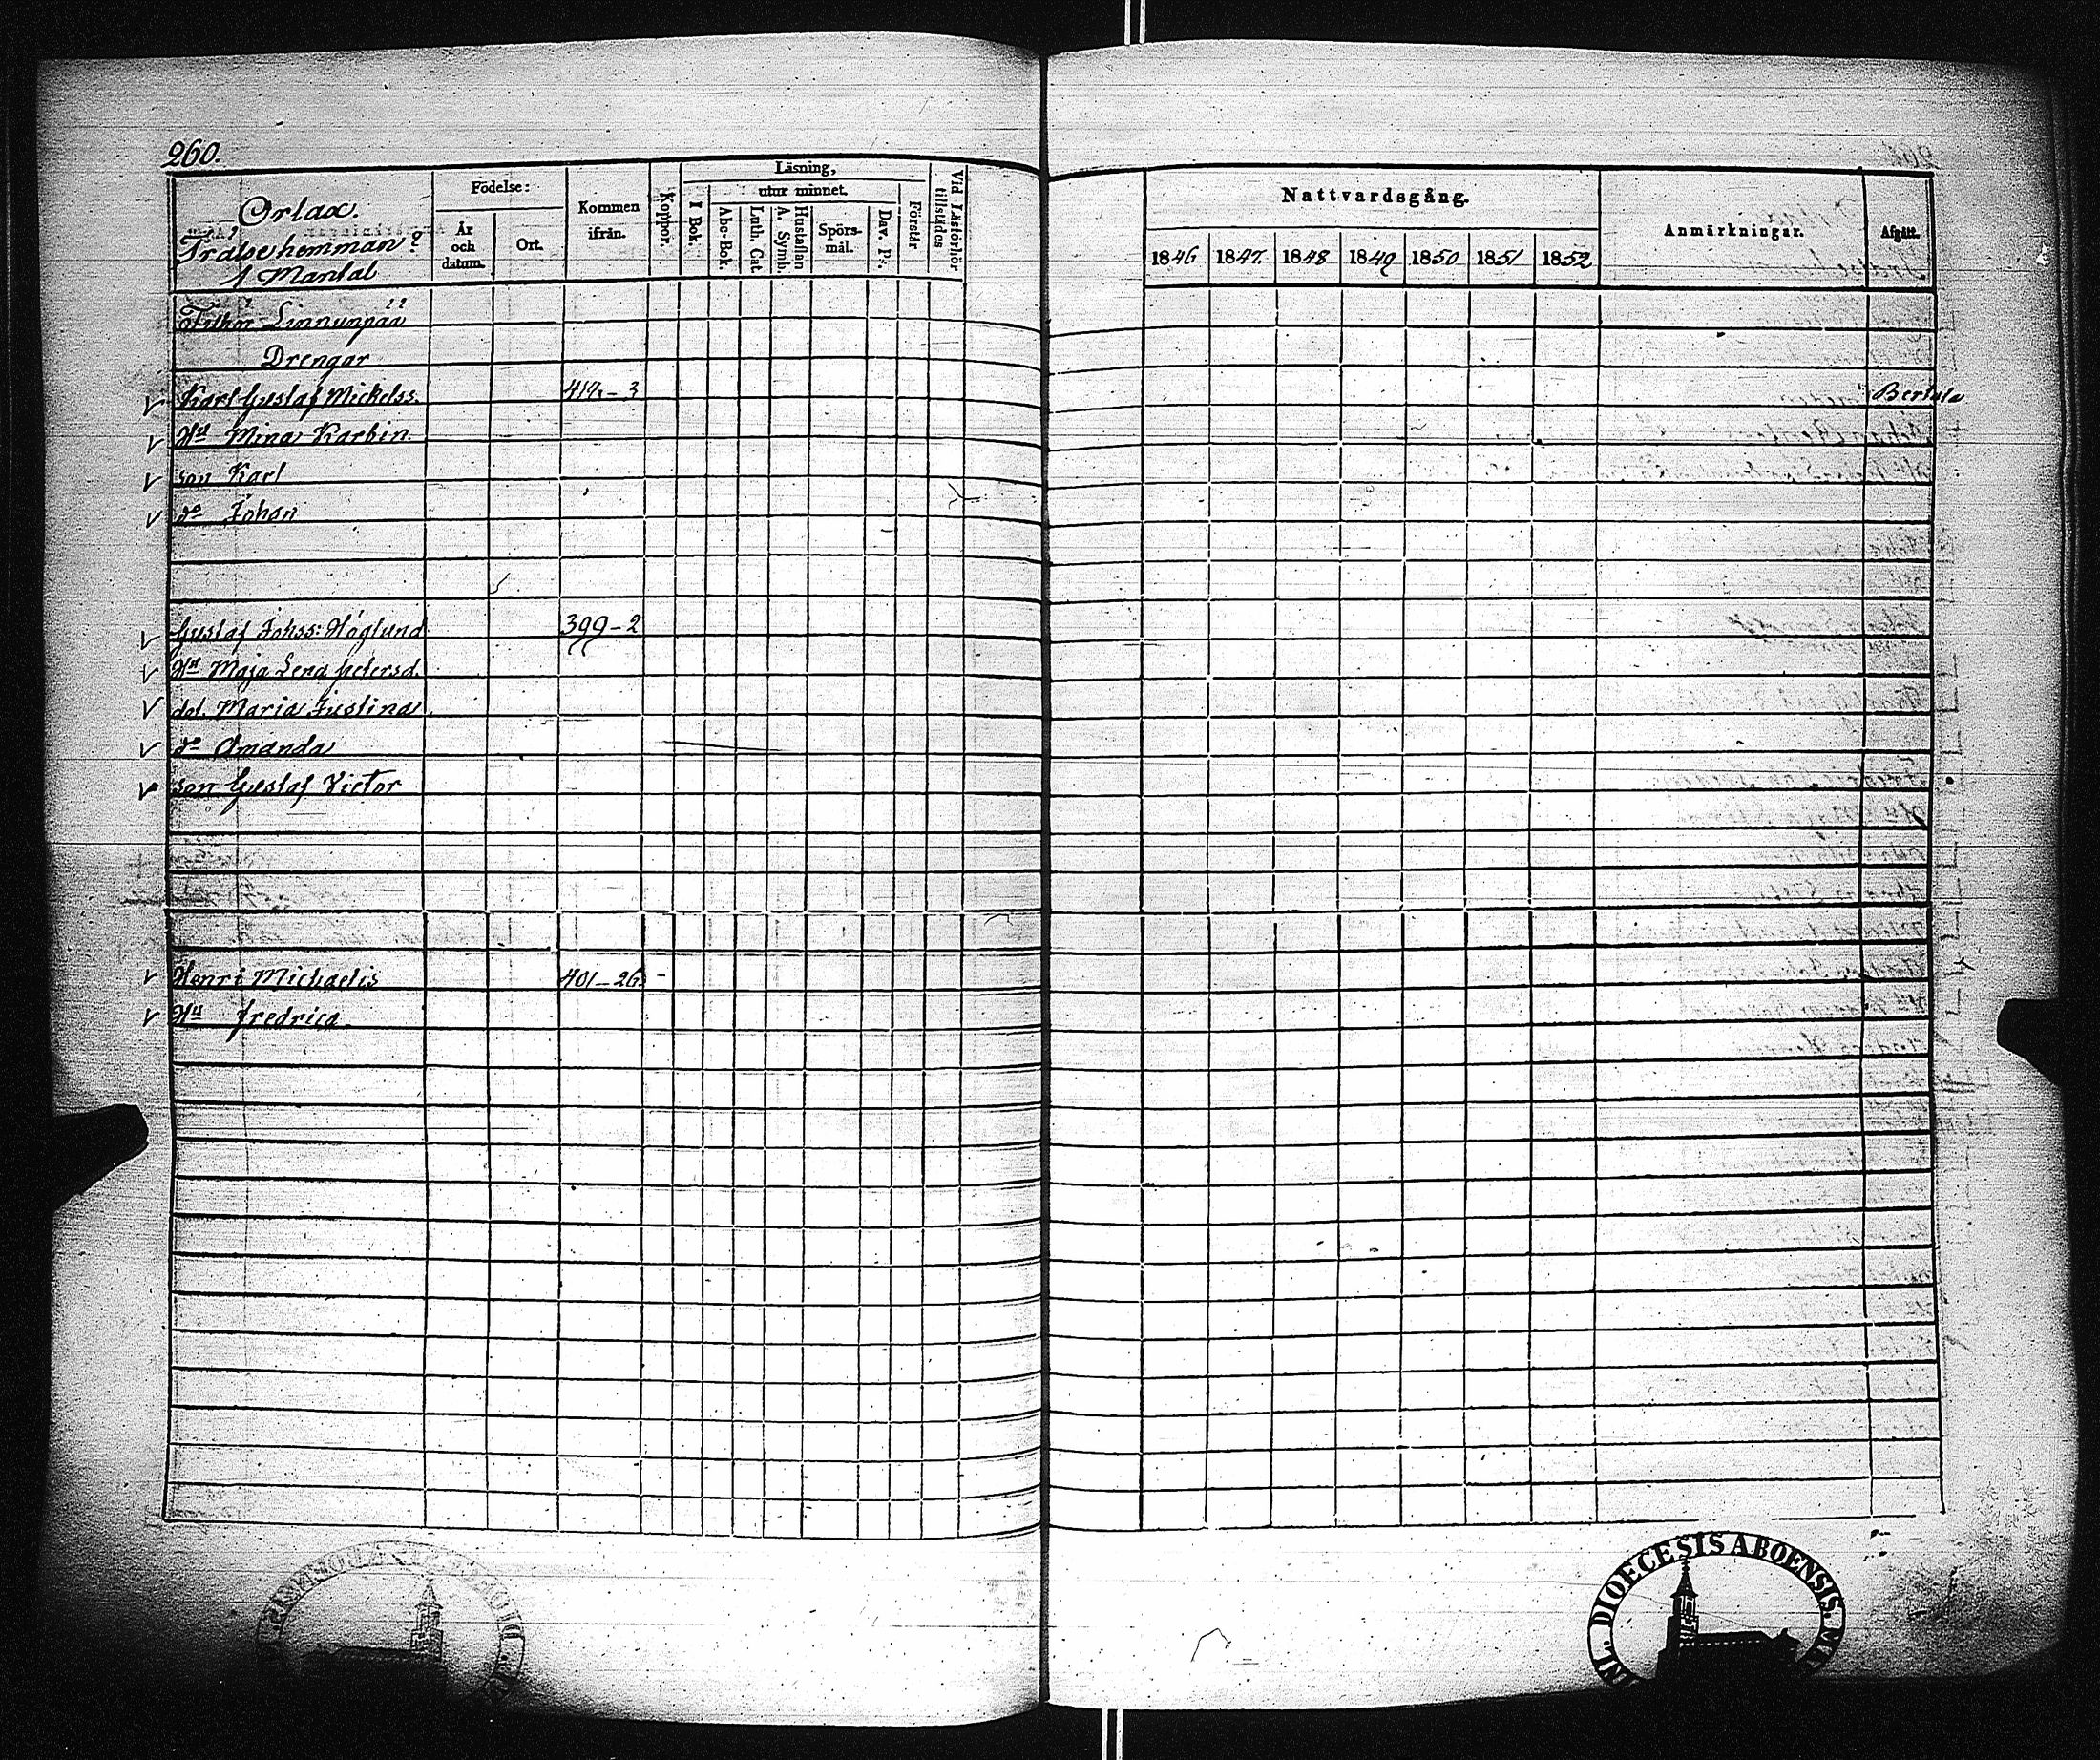 260.
Orlax.
Frälse hemman
1 Mantal
Födelse:
År
och
datum.
Ort.
Kommen
ifrån.
Koppor.
Läsning,
I Bok.
utur minnet.
Abc-Bok.
Luth. Cat.
Hustaflan
A. Symb.
Spörs-
mål.
Dav. P:.
Förstår
Vid Läsförhör
tillstädes
Nattvardsgång.
1846 1847 1848 1849 1850 1851 1852
Anmärkningar.
Afgått.
Linnunpää
Drengar
Karl Gustaf Mickelss. 3 Bertala
Hu Mina Karbin.
son Karl
do Johan
Gustaf Johss: Höglund 399-2
Hu Maja Lena Petersd.
dot. Maria Justina
do Amanda
son Gustaf Victor
Henri Michaelis 401-26
Hu Fredrica
DIOECESIS ABOENSIS.